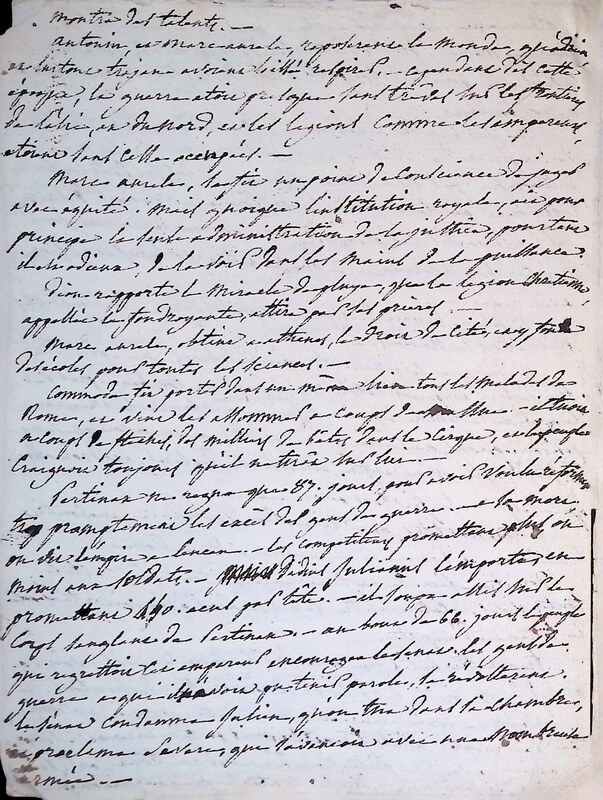 montra des talents. —
antonin, et marc aurele, reposerent le monde, qu'adrien
et surtout trajan avoient laissé respirer. — cependant dès cette
époque, la guerre étoit presque sans trêve sur les frontieres
de l'asie, et du nord, et les legions comme les empereurs,
étoient sans cesse occupés. —
Marc aurele, se fit un point de conscience de juger
avec équité. Mais quoique l'institution royale, ait pour
principe la seule administration de la justice, pourtant
il est odieux, de la voir dans les mains de la puissance.
Dion rapporte le miracle de pluye, que la legion chretienne
appellée la foudroyante, attira par ses prieres. —
Marc aurele, obtint a athenes, le droit de cité, et y fonda
des écoles pour toutes les sciences. —
Commode fit porter dans un même lieu tous les malades de
Rome, et vint les assommer a coups de massue. — il tuoit
a coups de fleches, des milliers de bêtes dans le Cirque, et le peuple
craignoit toujours qu'il ne tirât sur lui. —
Pertinax ne regna que 87. jours, pour avoir voulu réformer
trop promptement les excès des gens de guerre. — a sa mort
on mit l'empire a l'encan. — les competiteurs promettant plus ou
moins aux soldats. — Didius Julianus l'emporta, en
promettant 490. écus par tête. — il soupa assis sur le
corps sanglant de Pertinax. — au bout de 66. jours le peuple
qui regrettoit cet empereur encouragea le senat. les gens de
guerre a qui il avoit peu tenu parole, se révolterent.
le senat condamna Julien, qu'on tua dans sa chambre,
et proclama Severe, qui s'avançoit avec une nombreuse
armée. —